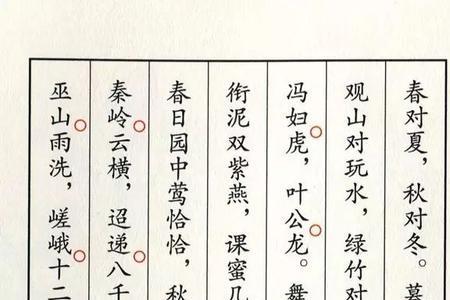 春对夏，秋对冬。暮
观山对玩水，绿竹对
冯妇虎，叶公龙。舞
衔泥双紫燕，课蜜几
春日园中莺恰恰，秋
秦岭云横，迢递八千
巫山雨洗，嵯峨十二